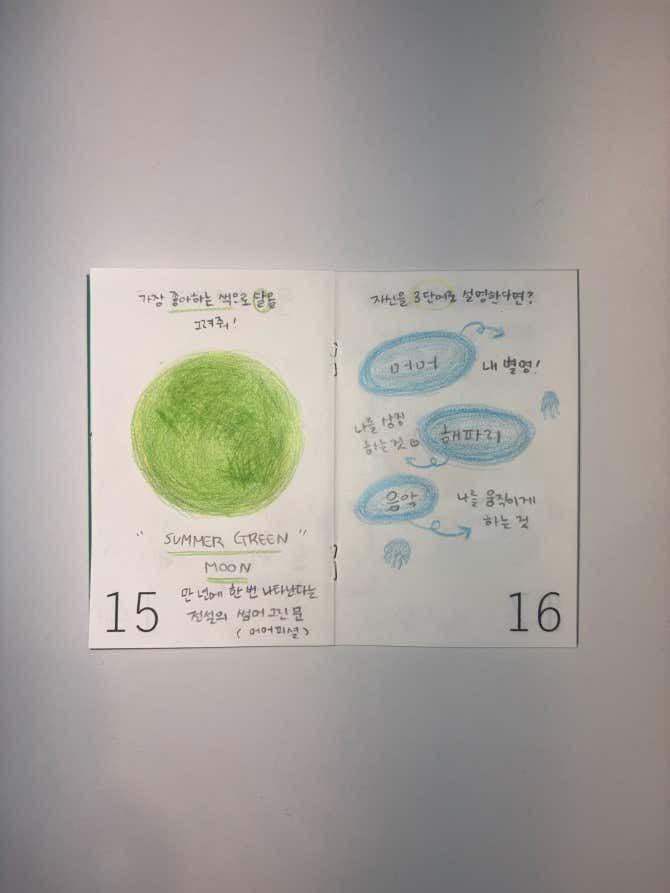 가장 좋아하는 색으로 달을
그려줘!
" SUMMER GREEN "
MOON
만 년에 한 번 나타난다는
전설의 썸머그린문
( 머머피셜 )
15
자신을 3단어로 설명한다면?
머머
내 별명!
나를 상징
하는 것
해파리
음악
나를 움직이게
하는 것
16